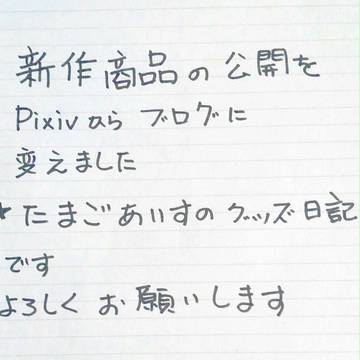 新作商品の公開を
Pixivから ブログに
変えました
★たまごあいすのグッズ日記
です
よろしく お願いします